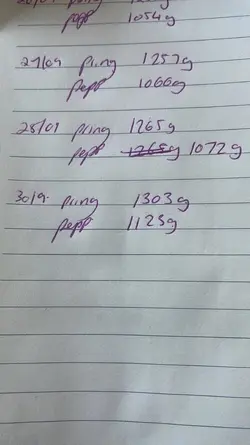 pepp 1054g
27/09 piing 1257g
pepp 1066g
28/09 piing 1265g
pepp 1265g 1072g
30/9. piing 1303g
pepp 1123g